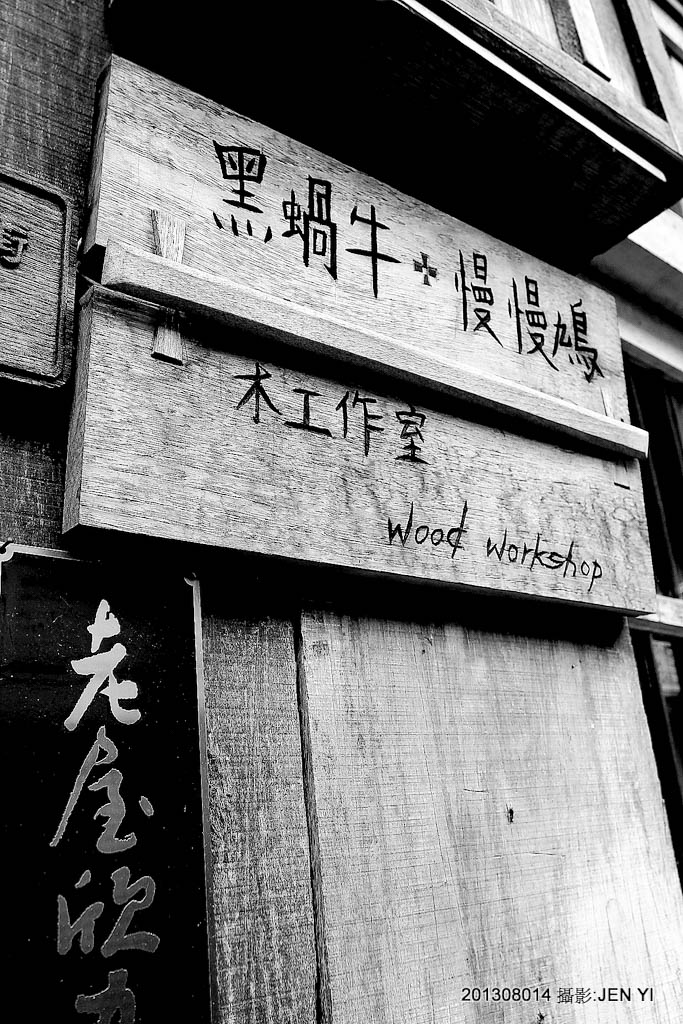 黑蝸牛+慢慢鳩
木工作室
wood workshop
老屋欣力
201308014 攝影:JEN YI